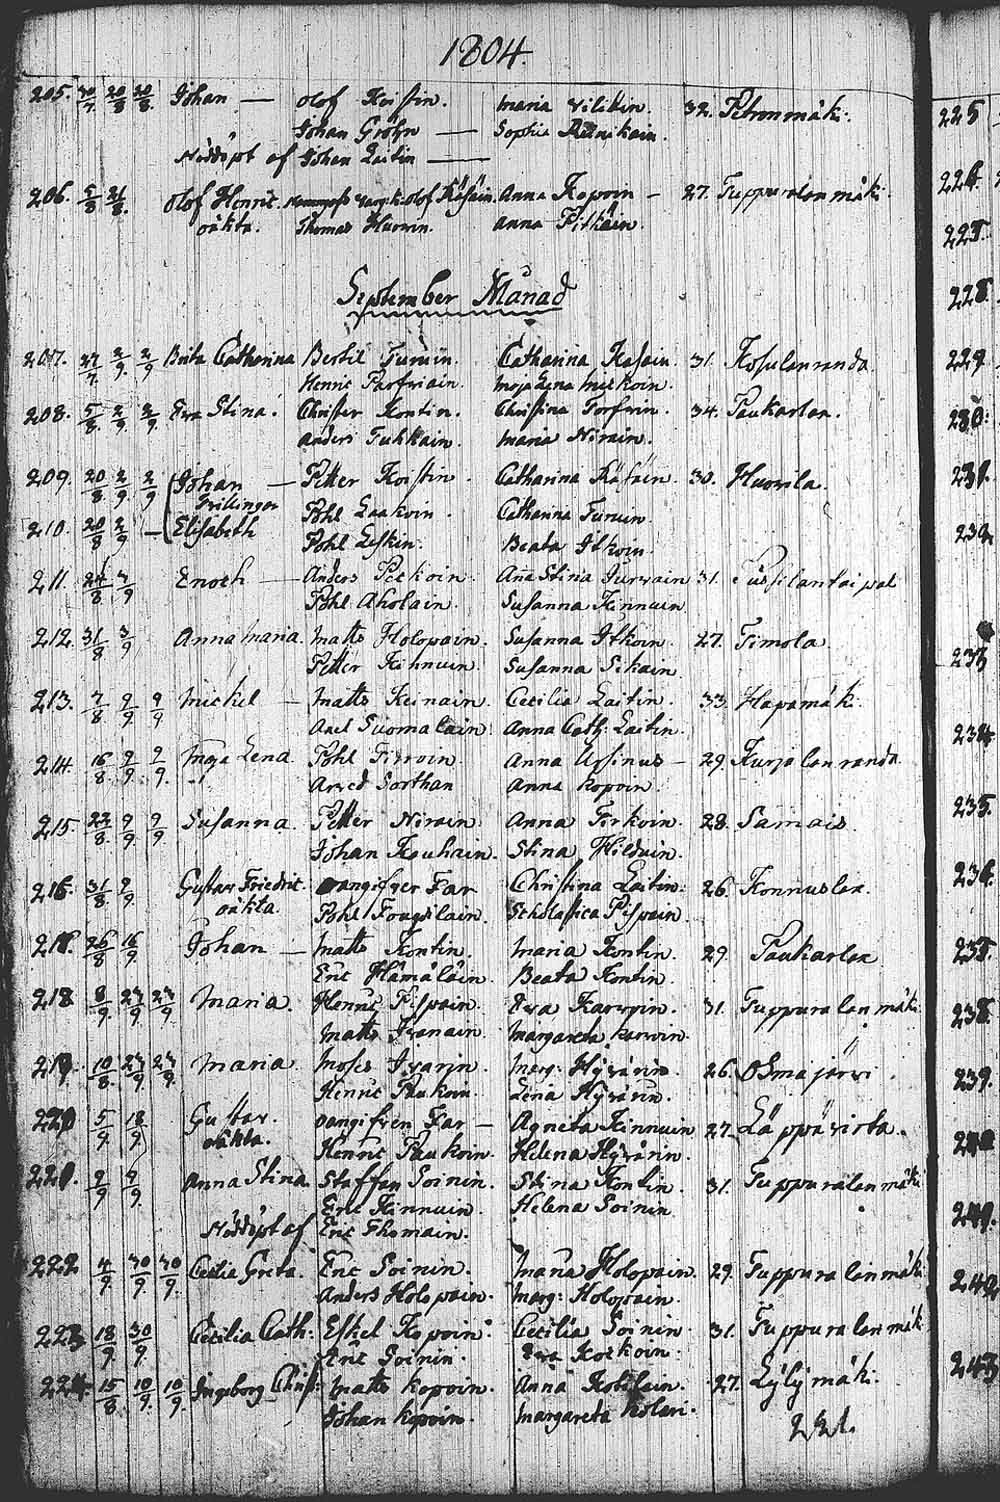 1804.
205. 30/7 20/8 20/8. Johan — Olof Koistin. Maria Vilikin. 32. Petronmäki.
Johan Gröhn — Sophia
Nöddöpt af Johan Laitin —
206. 5/8 21/8. Olof Henric Olof Räsäin. Anna Kopoin — 27. Tuppuralanmäki
oäkta. Thomas Huovin. Anna Pitkäin.
September Månad
207. 27/7. 2/9. 2/9 Brita Catharina Bertil Turuin. Catharina Kasain. 31. Kosulanranda.
Henric Parfviain. Maja Lena Mickoin.
208. 5/8. 2/9. 2/9. Eva Stina. Christer Kontin. Christina Torfvin. 34. Paukarlax.
Anders Tuhkain. Maria Nirain.
209. 20/8 2/9. 2/9 Johan — Petter Koistin. Catharina Räsäin. 30. Huovila.
Tvillingar Pohl Laakoin. Catharina Turuin.
210. 20/8 2/9 — Elisabeth Pohl Leskin. Beata Itkoin.
211. 24/8 3/9 Enoch — Anders Peckoin. Anna Stina Jurvain 31.
Pohl Aholain. Susanna Kinnuin.
212. 31/8 3/9 Anna Maria. Matts Holopain. Susanna Itkoin. 27. Timola.
Petter Kinnuin. Susanna Sikain.
213. 7/8 9/9 9/9 Mickel — Matts Keinain. Cecilia Laitin. 33. Hapamäki.
Axel Suomalain. Anna Cath: Laitin.
214. 16/8. 9/9. 9/9. Maja Lena Pohl Tirroin. Anna Ursinus — 29. Kurjalanranda
Arved Sorthan Anna Kopoin.
215. 22/8. 9/9. 9/9. Susanna. Petter Nirain. Anna Torkoin. 28. Samais
Johan Kauhain. Stina Hilduin.
216. 31/8. 9/9. Gustav Friedric. oangifven Far Christina Laitin: 26. Konnuslax.
oäkta. Pohl Scholastica Pispain.
218. 26/8 16/9. Johan — Matts Kontin. Maria Kontin. 29. Paukarlax
Eric Hämäläin. Beata Kontin.
218 8/9. 23/9. 23/9. Maria. Henric Pispain. Eva Karvoin. 31. Tuppuralanmäki.
Matts Ivanain. Margareta Karvoin.
219. 10/8. 23/9 23/9. Maria. Moses Ivarin. Marg: Hyvärin. 26. Osmajärvi.
Henric Paukoin. Lena Hyvärin.
220 5/9. 18/9 Gustav. oangifven Far — Agneta Kinnuin 27. Läppävirta.
oäkta. Henric Paukoin. Helena Hyvärin.
221. 9/9 9/9. Anna Stina. Staffan Soinin. Stina Kontin. 31. Tuppuralanmäki
Eric Kinnuin. Helena Soinin
Nöddöpt af Eric Thomain.
222 4/9. 30/9. 30/9. Cecilia Greta. Eric Soinin. Maria Holopain. 29. Tuppuralanmäki
Anders Holopain. Marg: Holopain.
223 18/9. 30/9. Cecilia Cath: Eskel Kopoin. Cecilia Soinin. 31. Tuppuralanmäk
Eric Soinin. Eva Kockoin.
224. 15/8. 10/9. 10/9. Ingeborg Christ: Matts Kopoin. Anna Kohilain. 27. Lylymäki.
Johan Kopoin. Margareta Kolari.
225
226.
227.
228.
229
230.
231.
232
233
234
235.
236.
237.
238.
239.
240
241.
242
243